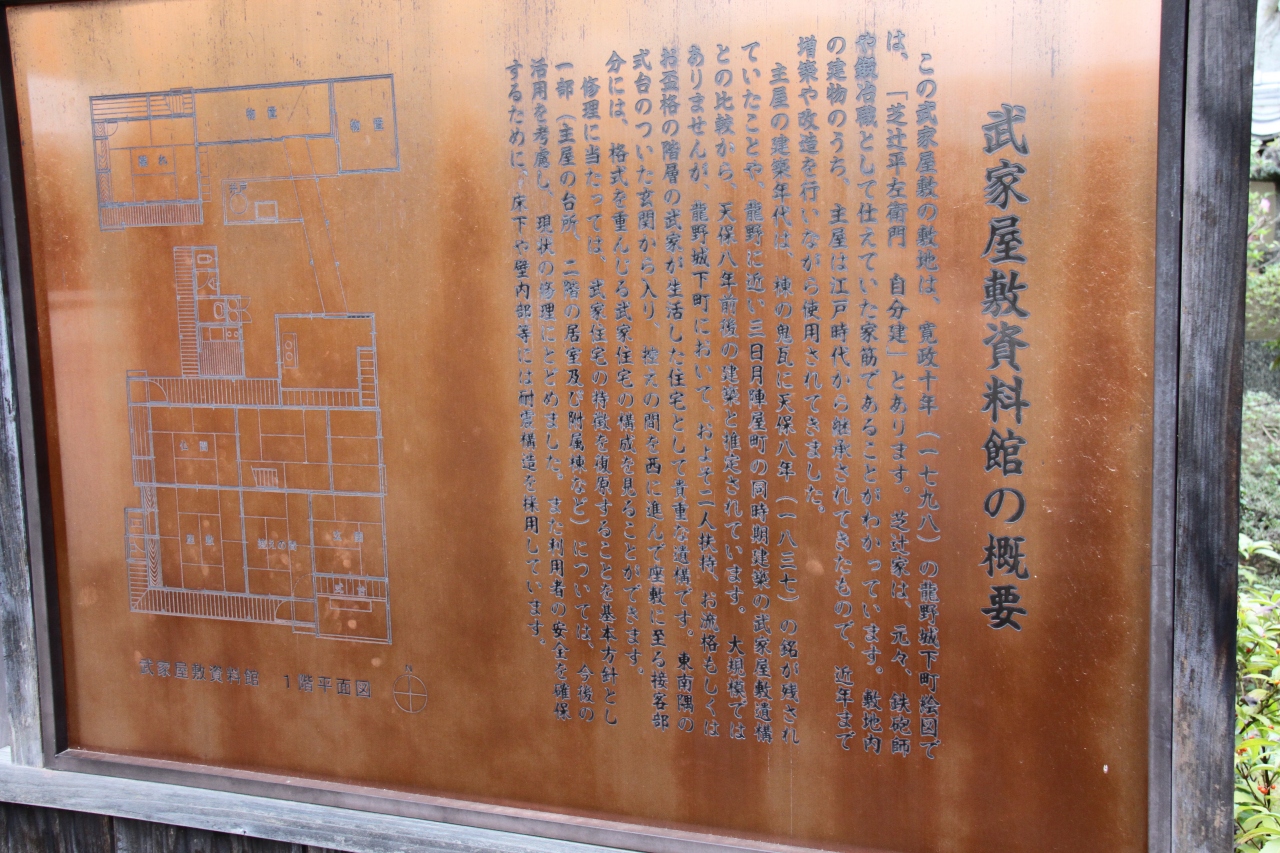 武家屋敷資料館の概要
この武家屋敷の敷地は、寛政十年（一七九八）の龍野城下町絵図で
は、「芝辻平左衛門　自分建」とあります。芝辻家は、元々、鉄砲師
や鍛冶職として仕えていた家筋であることがわかっています。敷地内
の建物のうち、主屋は江戸時代から継承されてきたもので、近年まで
増築や改造を行いながら使用されてきました。
主屋の建築年代は、棟の鬼瓦に天保八年（一八三七）の銘が残され
ていたことや、龍野に近い三日月陣屋町の同時期建築の武家屋敷遺構
との比較から、天保八年前後の建築と推定されています。大規模では
ありませんが、龍野城下町において、およそ二人扶持、お流格もしくは
お盃格の階層の武家が生活した住宅として貴重な遺構です。東南隅の
式台のついた玄関から入り、控えの間を西に進んで座敷に至る接客部
分には、格式を重んじる武家住宅の構成を見ることができます。
修理に当たっては、武家住宅の特徴を復原することを基本方針とし
一部（主屋の台所、二階の居室及び附属棟など）については、今後の
活用を考慮し、現状の修理にとどめました。また利用者の安全を確保
するために、床下や壁内部等には耐震構造を採用しています。
井戸
仏間
座敷
控えの間
玄関
武家屋敷資料館　1階平面図
N